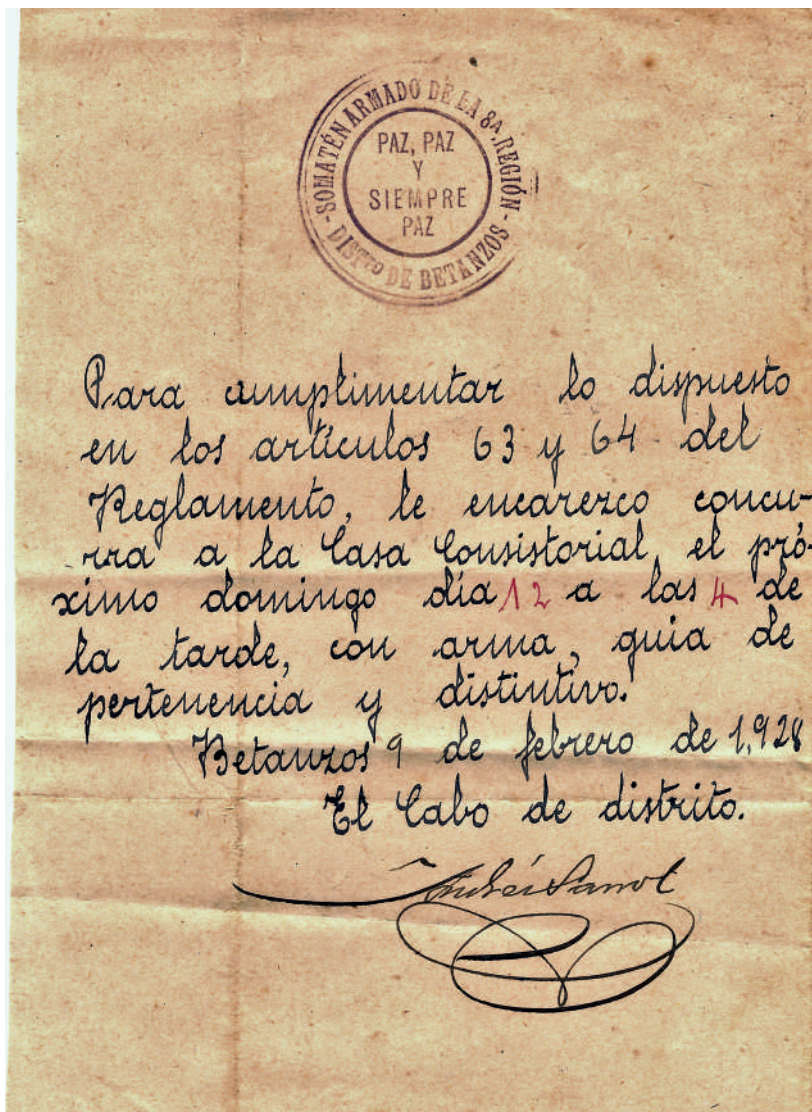 SOMATÉN ARMADO DE LA 8ª REGIÓN
- DISTTO DE BETANZOS -
PAZ, PAZ
Y
SIEMPRE
PAZ
Para cumplimentar lo dispuesto
en los artículos 63 y 64 del
Reglamento, le encarezco concu-
rra a la Casa Consistorial, el pró-
ximo domingo día 12 a las 4 de
la tarde, con arma, guia de
pertenencia y distintivo.
Betanzos 9 de febrero de 1,928
El Cabo de distrito.